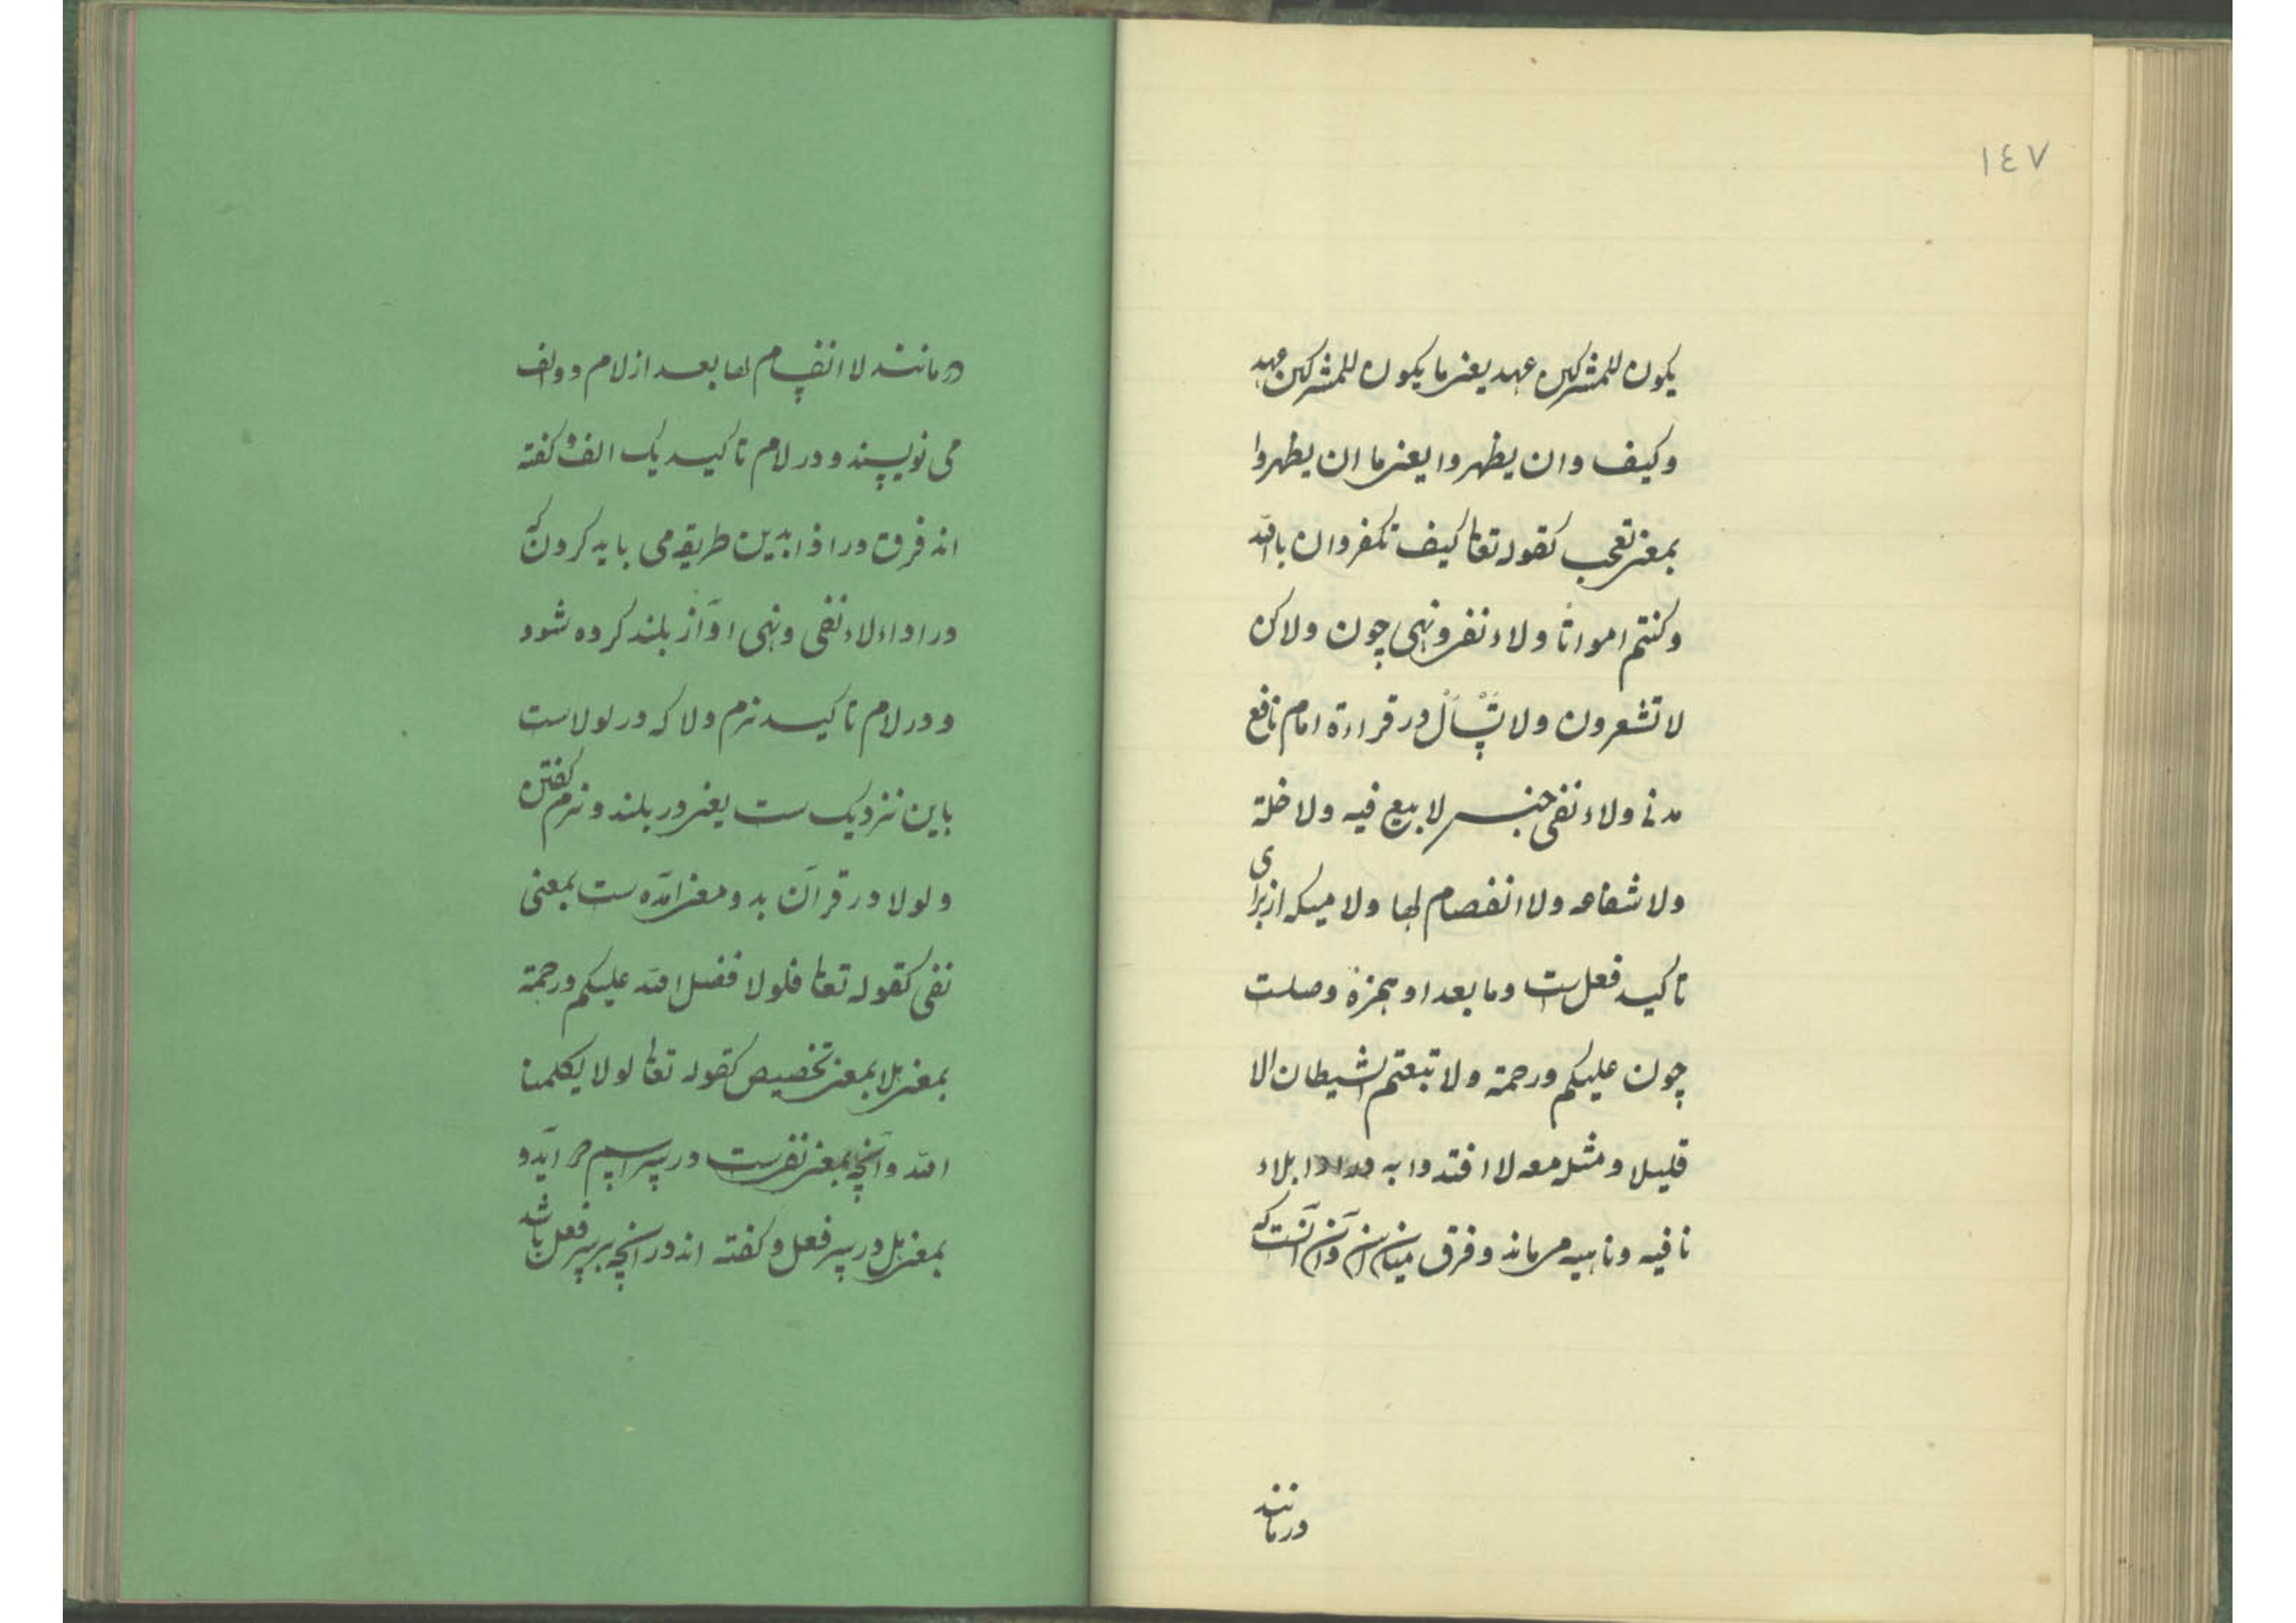 ١٤٧
یکون للمشرکین عهد یعنی ما یکون للمشرکین عهد
وکیف وان یظهروا یعنی ما ان یظهروا
بمعنی تعجب کقوله تعا کیف تکفروان بالله
وکنتم امواتا ولاء نفی ونهی چون ولاکن
لا تشعرون ولا تَسْأَلْ در قراءة امام نافع
مدنی ولاء نفی جنس لا بیع فیه ولا خلة
ولا شفاعه ولا انفصام لها ولا میکه از برای
تاکید فعل ست وما بعد او همزهٔ وصلت
چون علیکم ورحمة ولا تبعتم الشیطان الا
قلیلا ومثله معه لا افتدوا به بلاء
نافیه وناهیه می ماند وفرق میان این وآن آنست که
در مانند
در مانند لا انفسام لها بعد از لام دو الف
می نویسند ودر لام تاکید یک الف وگفته
اند فرق در ادا بدین طریقه می باید کردن که
در اداء لاء نفی ونهی اوآز بلند کرده شود
ودر لام تاکید نرم ولا که در لولاست
باین نزدیک ست یعنی در بلند ونرم گفتن
ولولا در قرآن بدو معنی آمده ست بمعنی
نفی کقوله تعا فلولا فضل الله علیکم ورحمة
بمعنی هلا بمعنی تخصیص کقوله تعا لولا یکلمنا
الله وآنچه بمعنی نفی ست در سر اسم در آید و
بمعنی هل در سر فعل وگفته اند در آنچه بر سر فعل باشد